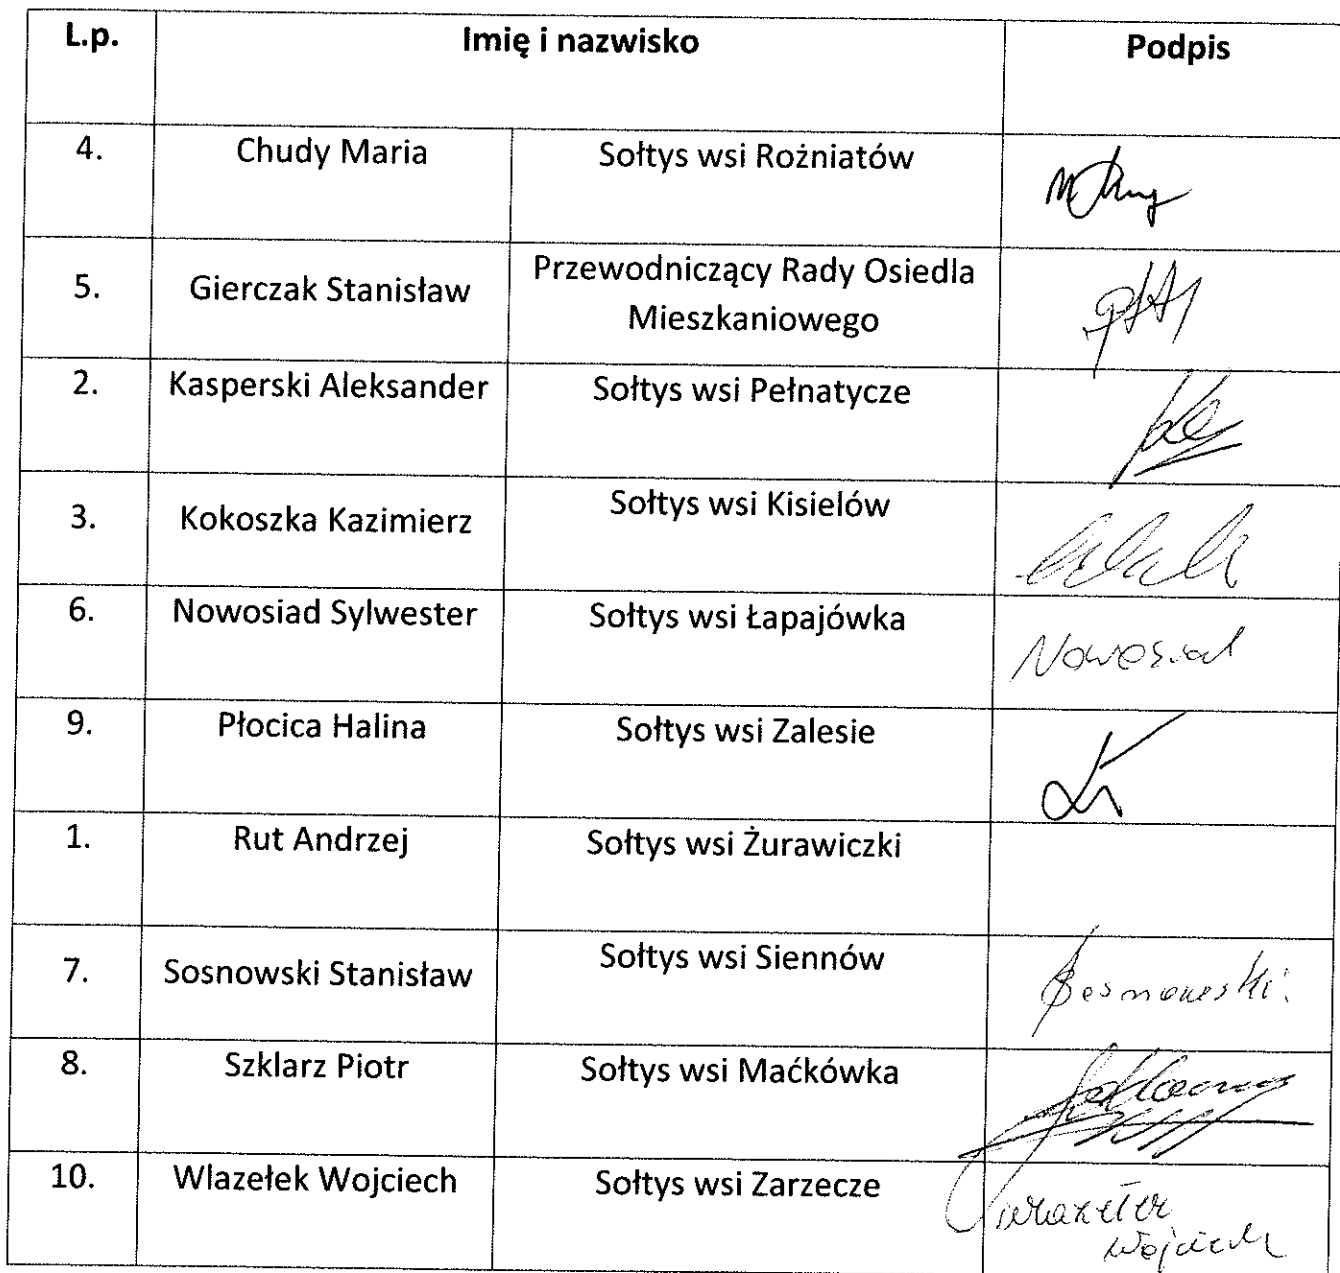 L.p. Imię i nazwisko Podpis
4. Chudy Maria Sołtys wsi Rożniatów
5. Gierczak Stanisław Przewodniczący Rady Osiedla
Mieszkaniowego
2. Kasperski Aleksander Sołtys wsi Pełnatycze
3. Kokoszka Kazimierz Sołtys wsi Kisielów
6. Nowosiad Sylwester Sołtys wsi Łapajówka Nowosiad
9. Płocica Halina Sołtys wsi Zalesie
1. Rut Andrzej Sołtys wsi Żurawiczki
7. Sosnowski Stanisław Sołtys wsi Siennów Sosnowski
8. Szklarz Piotr Sołtys wsi Maćkówka
10. Wlazełek Wojciech Sołtys wsi Zarzecze Wlazełek
Wojciech